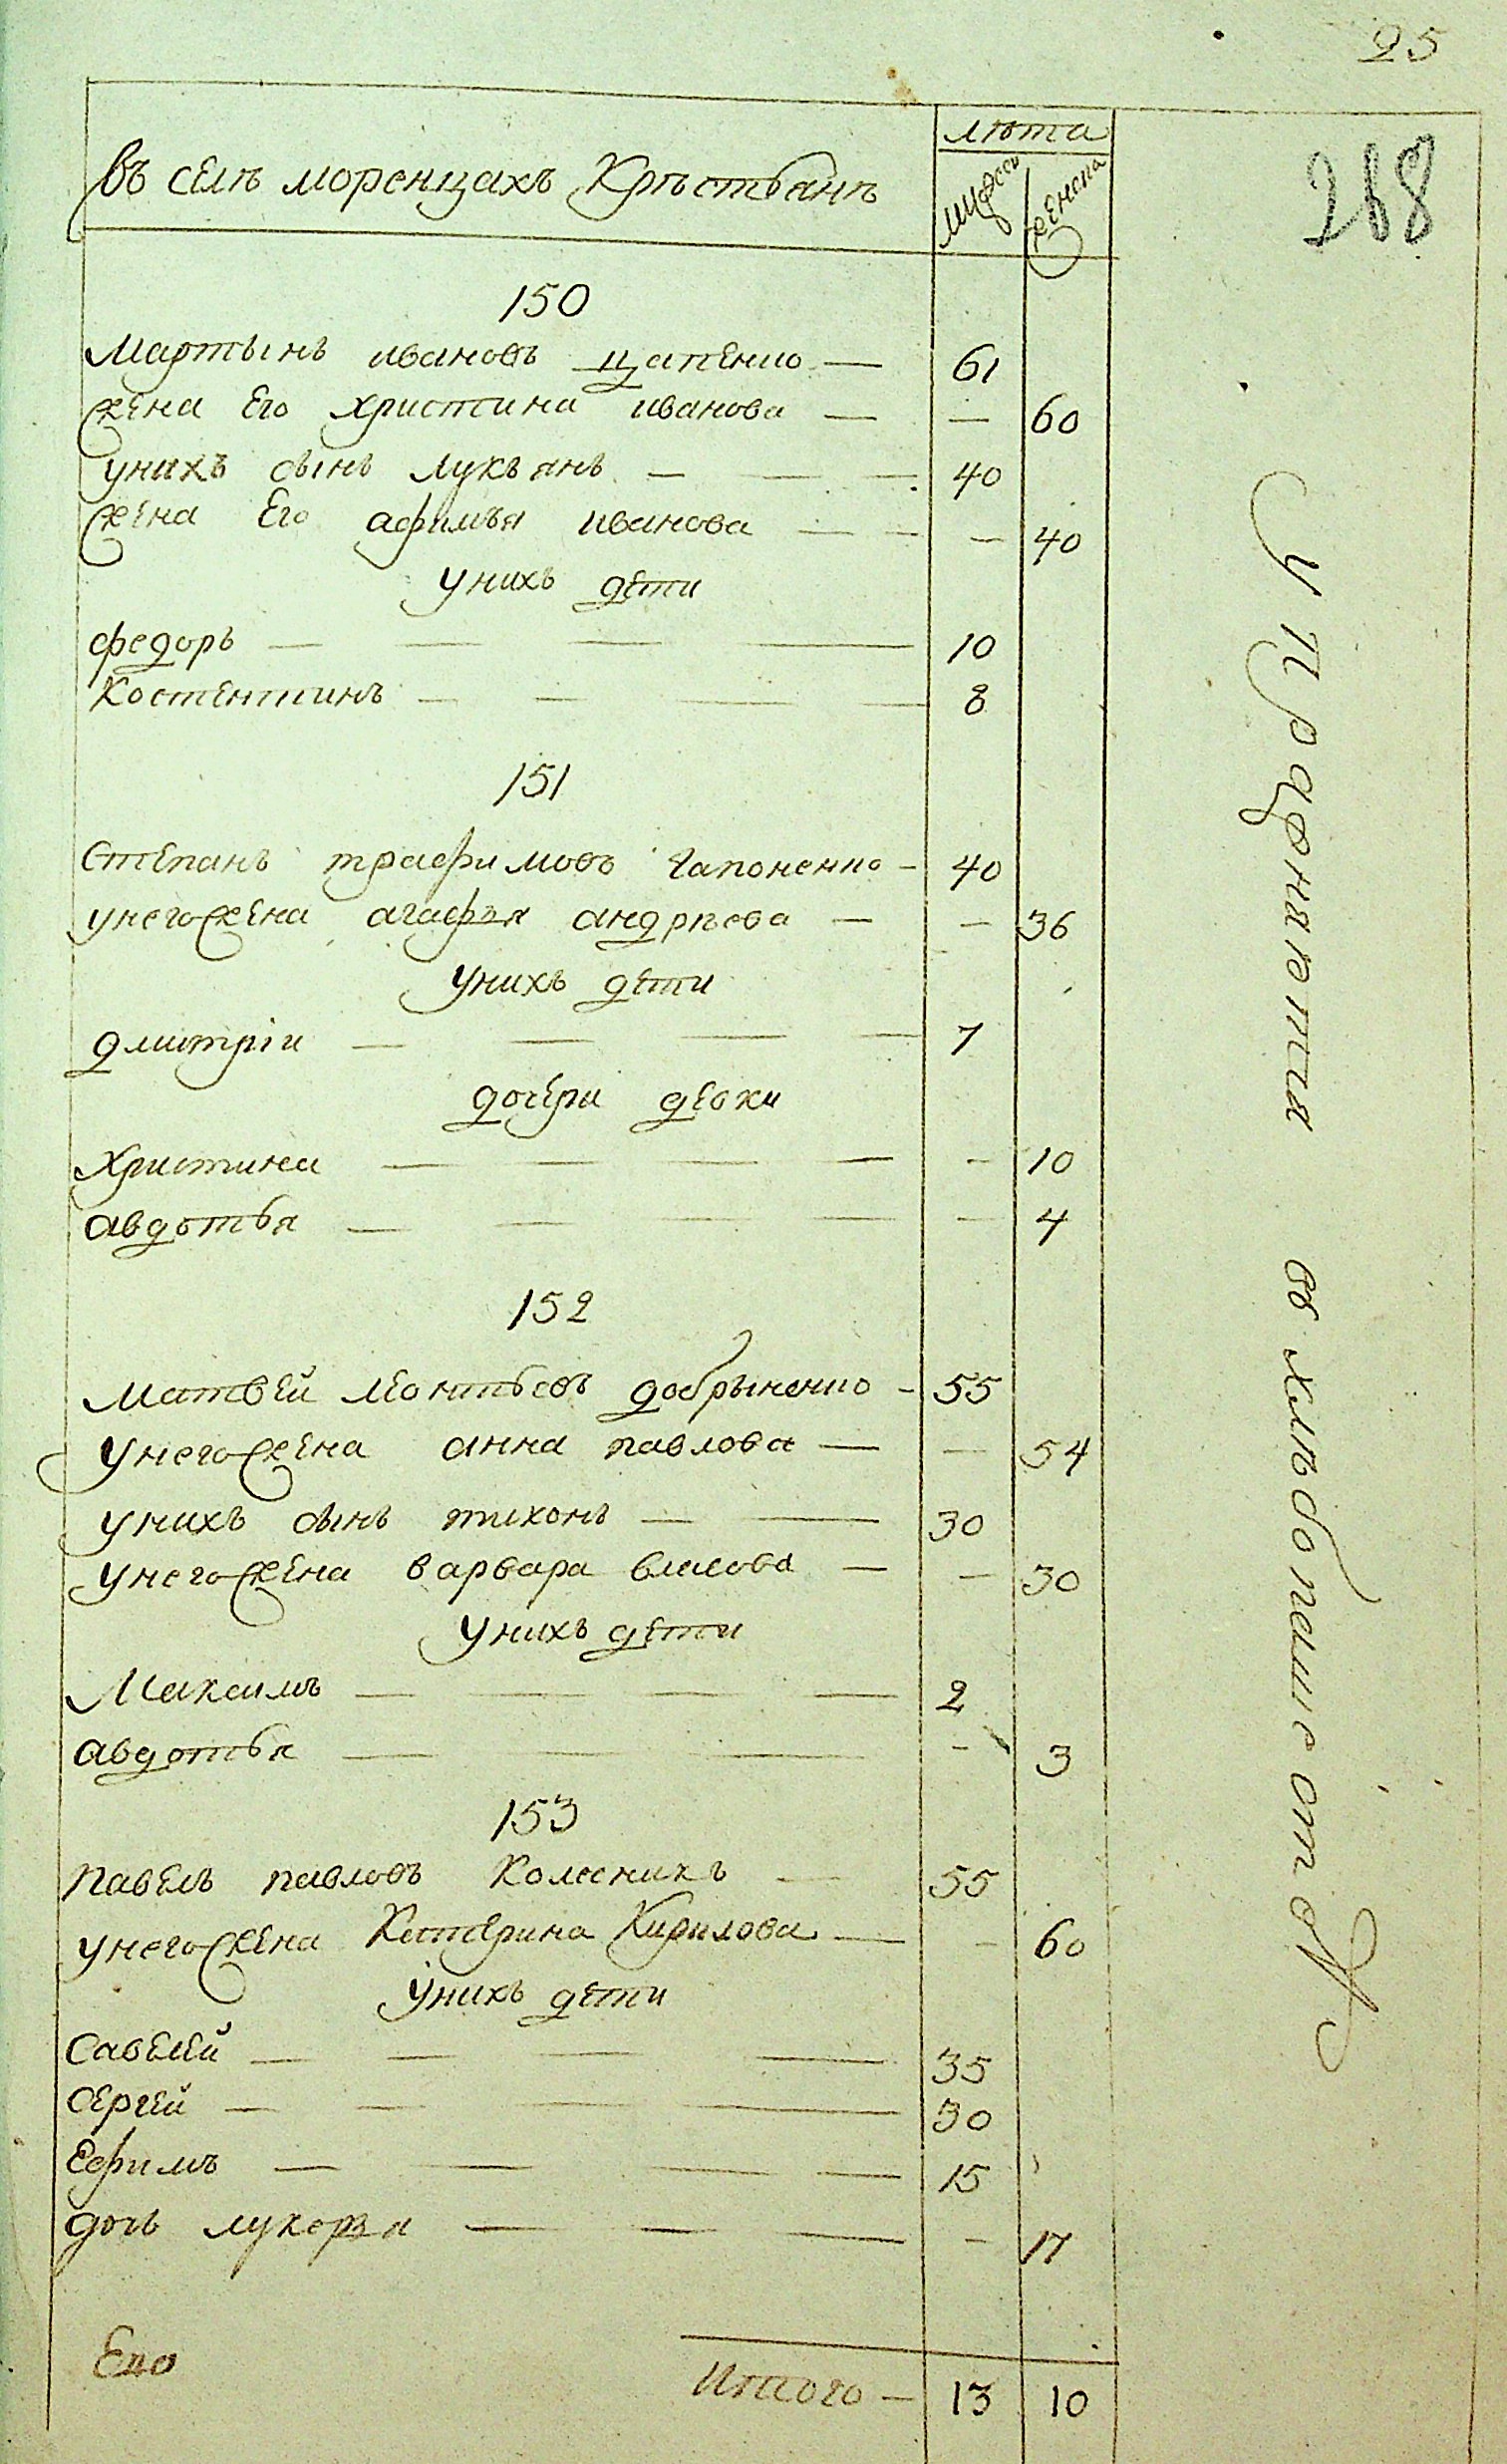 25
288
въ селѣ моренцахъ Крѣстьянѣ
лѣта
мужеск
женска
150
Мартынъ ивановъ цапенко — 61
жена Его христина иванова — — 60
унихъ сынъ лукъянъ — 40
жена Его афимья иванова — — 40
унихъ дети
федоръ — 10
Костентинъ — 8
151
Степанъ трафимовъ гапоненко — 40
унего жена агафья андрѣева — — 36
унихъ дети
дмитрiи — 7
дочери девки
христина — — 10
авдотья — — 4
152
матвѣй леонтьевъ добрыненко — 55
унего жена анна павлова — — 54
унихъ сынъ тихонъ — 30
унего жена варвара власова — — 30
унихъ дети
Максимъ — 2
авдотья — — 3
153
павелъ павловъ Колесникъ — 55
унего жена Катерина Кирилова — — 60
унихъ дети
савелей — 35
сергей — 30
Ефимъ — 15
дочь лукерья — — 17
Итого — 13 10
упражняются въ хлѣбопашестѣ